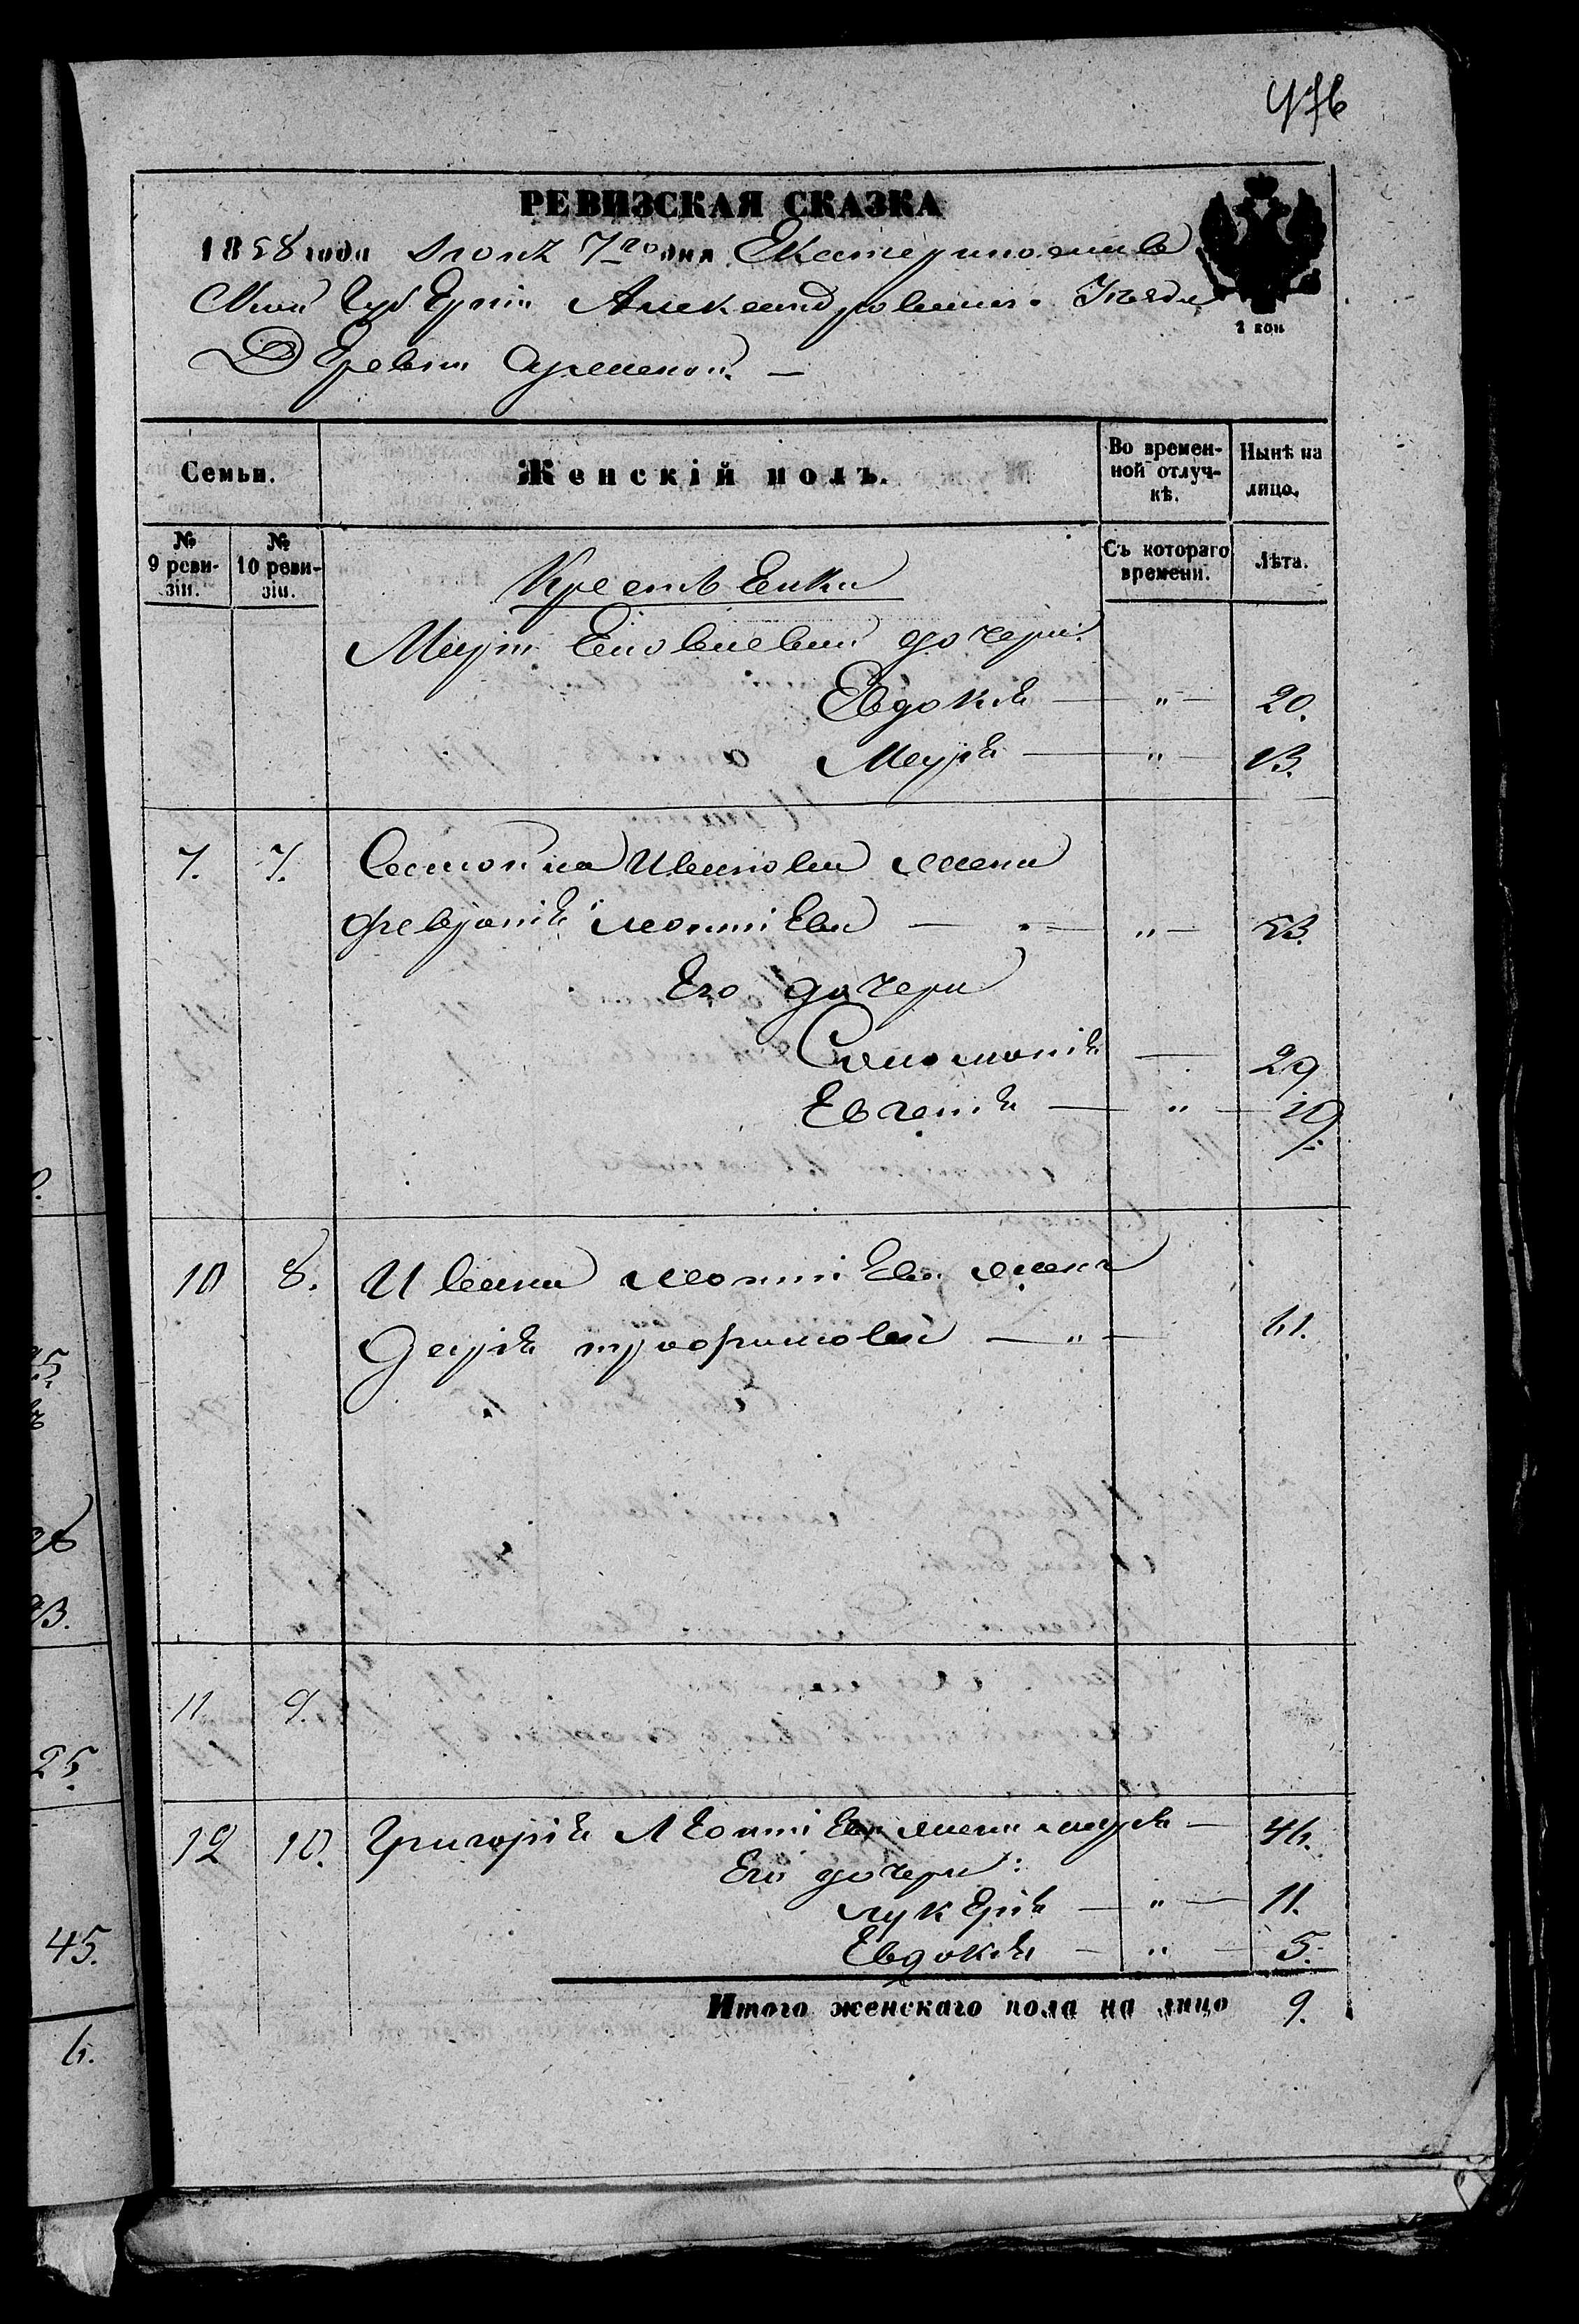 476
РЕВИЗСКАЯ СКАЗКА
1858 года 7го дня Екатеринослав
ской Губерніи Александровскаго Уѣзда
Деревни
2 коп
Семьи.
Женскій полъ.
Во времен-
ной отлуч-
кѣ.
Нынѣ на
лицо.
№
9 реви-
зіи.
№
10 реви-
зіи.
Съ котораго
времени.
Лѣта.
Крестьянки
дочери
Евдокія — „ — 20.
Марѳа — „ — 13.
7. 7. Иванова жена
Феврониа Леонтіева — „ — 53.
Его дочери
Соломонія — 29
Евгенія — „ — 19.
10 8. Ивана Леонтіева жена
Дарія Трофимова — „ — 61.
11 9.
12 10. Григорія Леонтіева жена Марія — 46.
Его дочери:
Лукерія — „ — 11.
Евдокія — „ — 5.
Итого женскаго пола на лицо 9.
25.
45.
6.